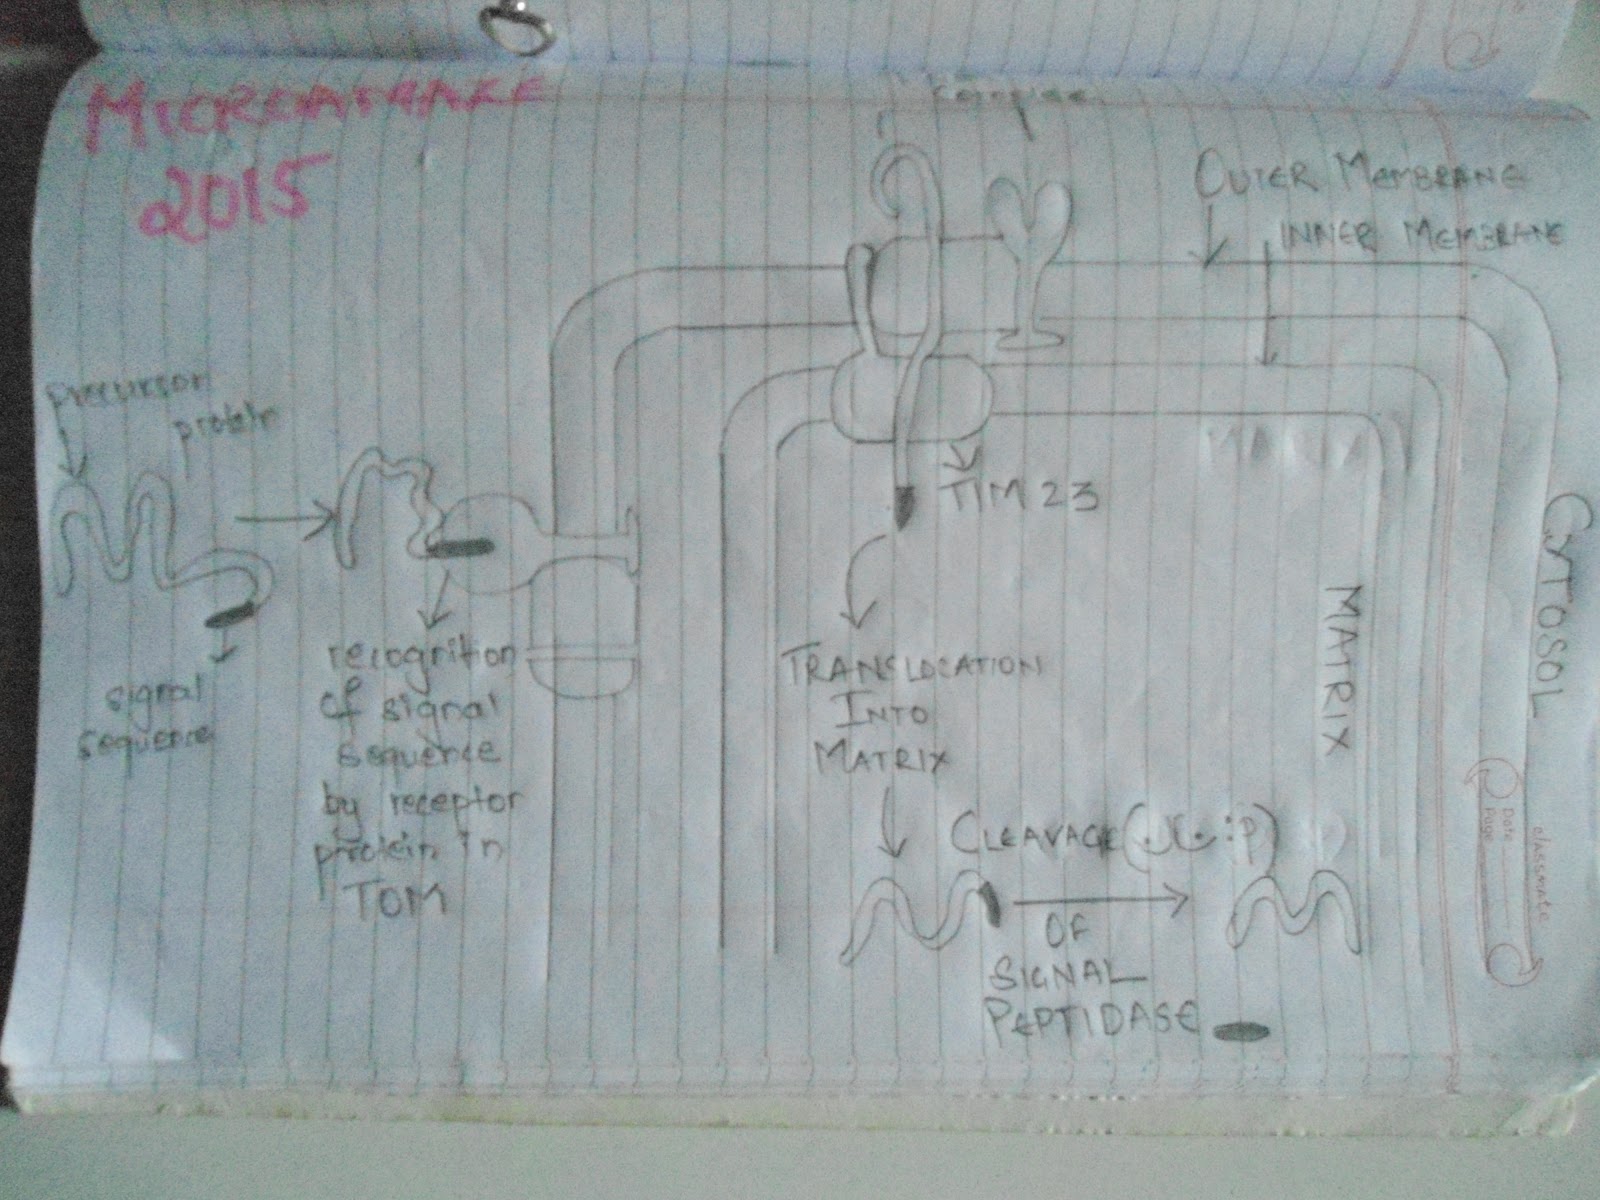 MICROAMAZE
2015
complex
OUTER MEMBRANE
INNER MEMBRANE
precursor
protein
signal
sequence
recognition
of signal
sequence
by receptor
protein in
TOM
TIM 23
TRANSLOCATION
INTO
MATRIX
CLEAVAGE
OF
SIGNAL
PEPTIDASE
MATRIX
CYTOSOL
classmate
Date
Page